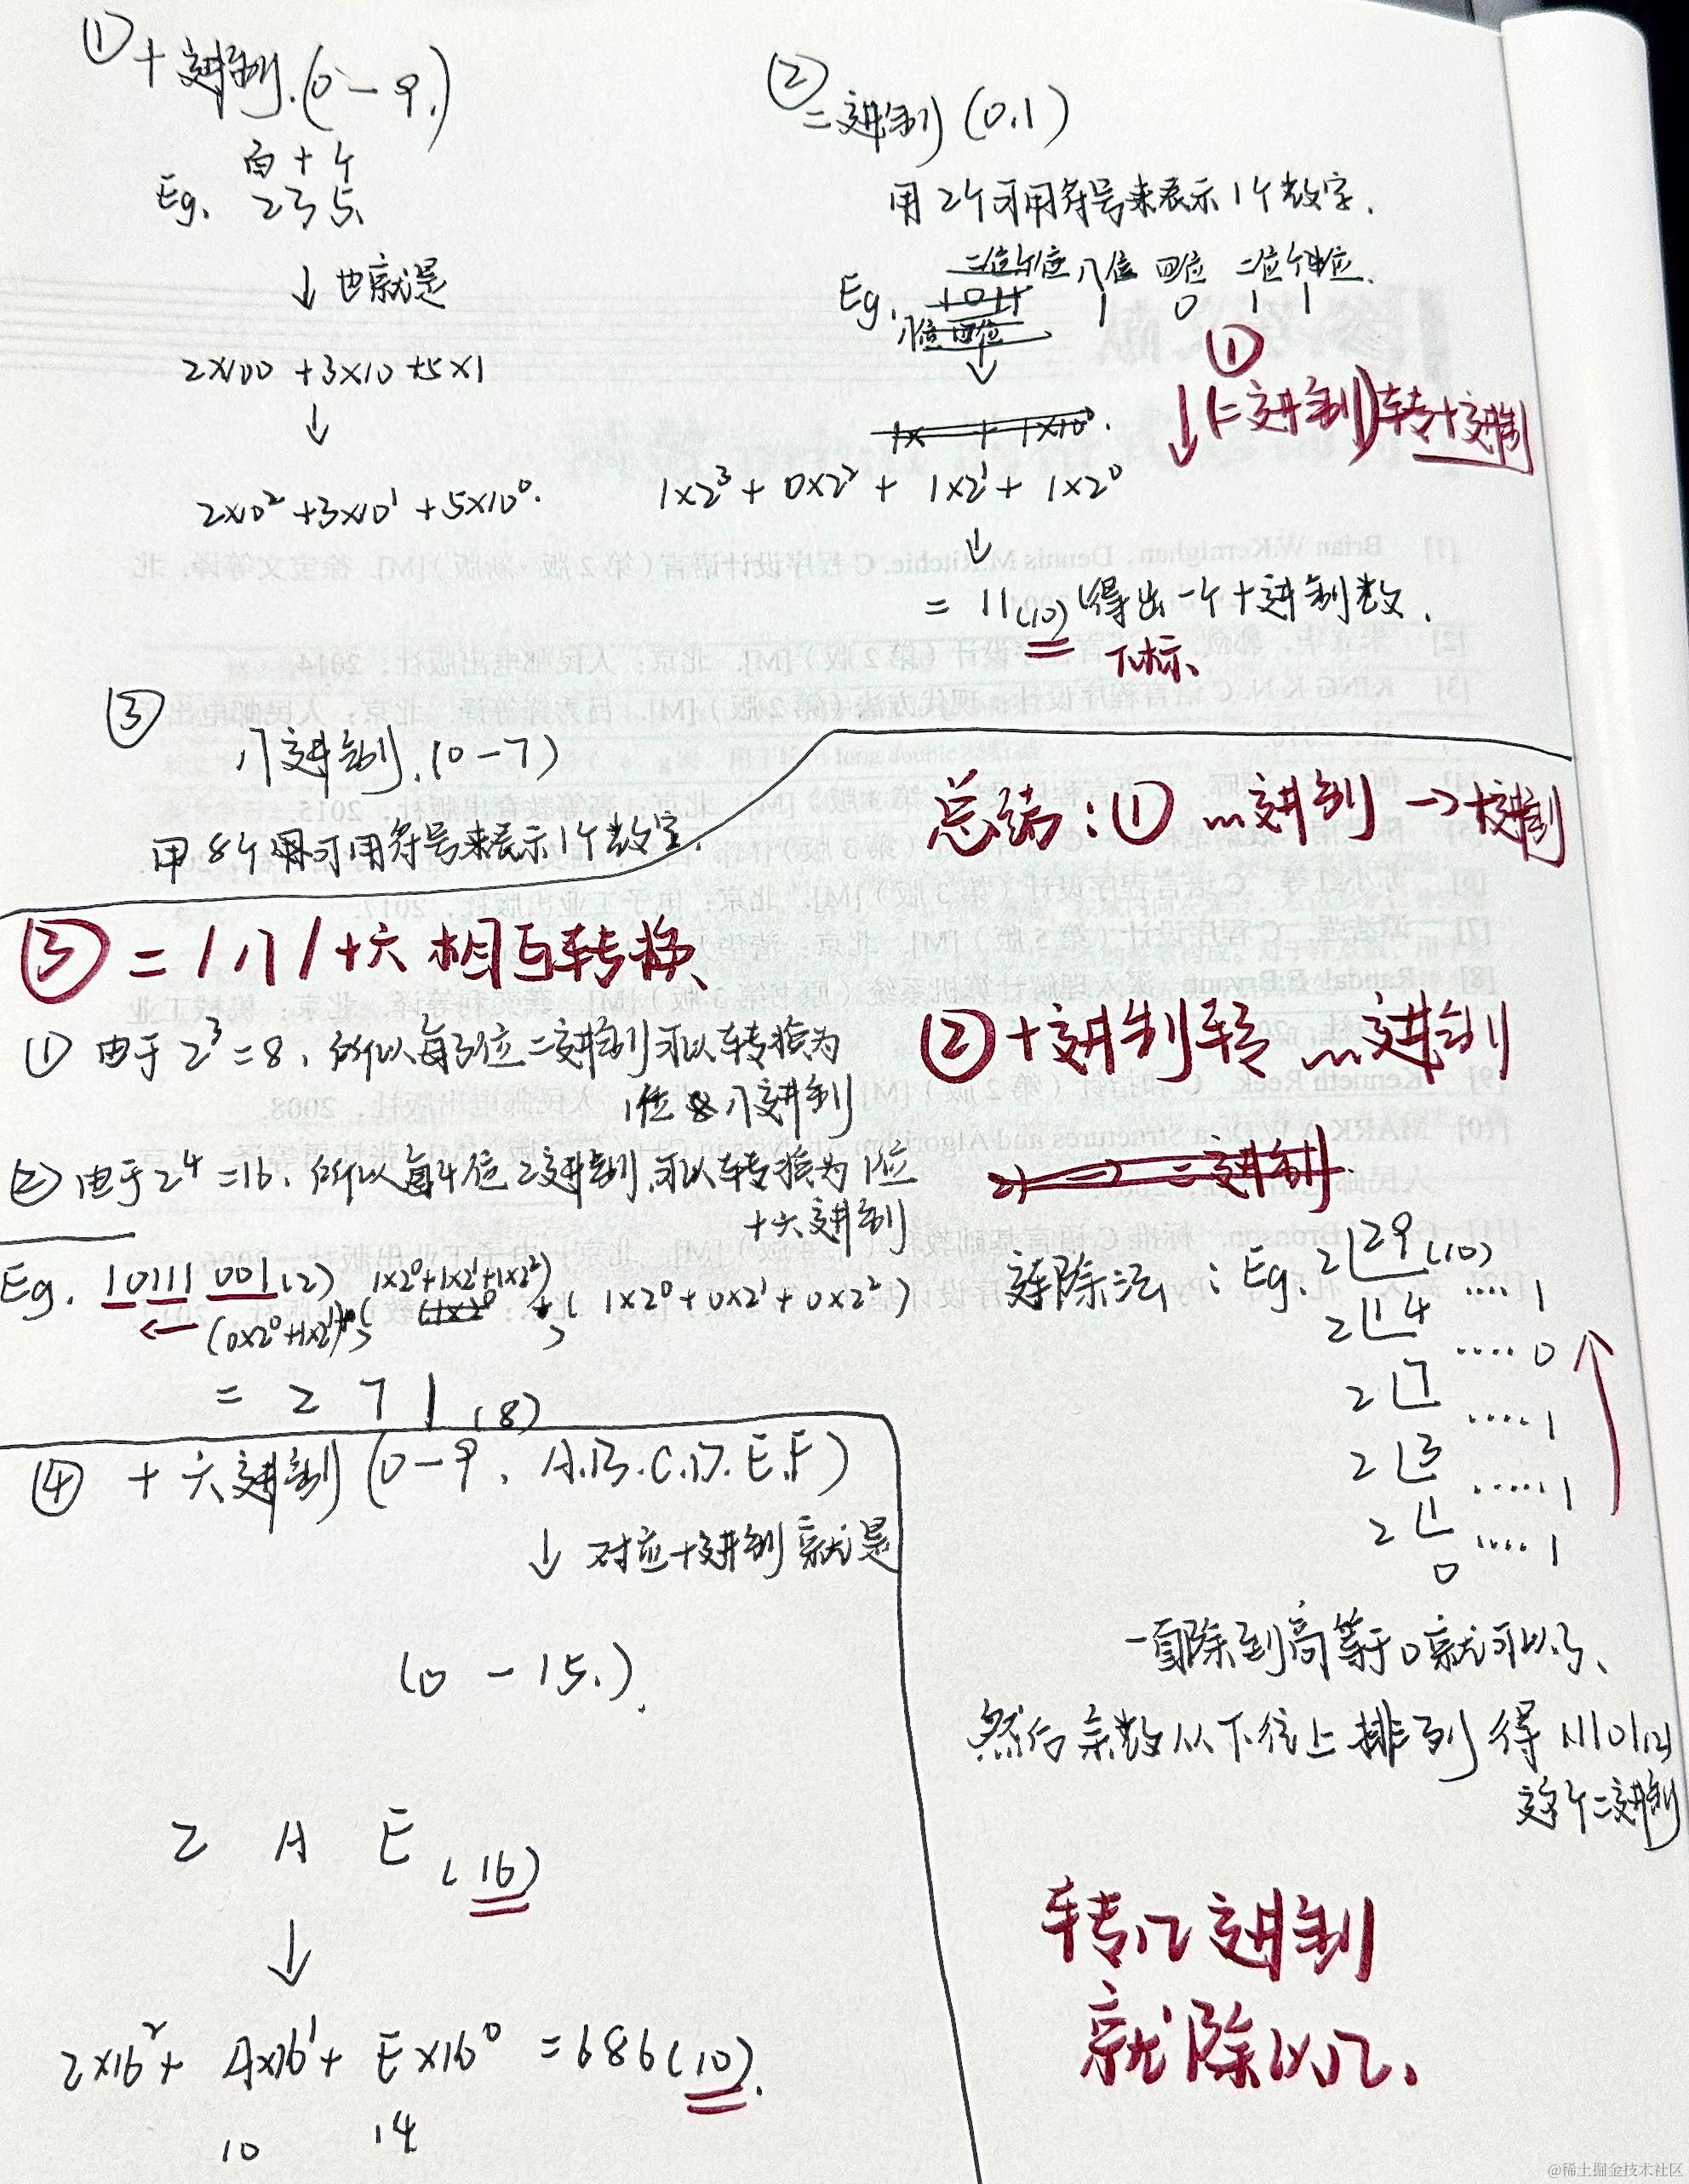 ① 十进制.(0-9.)
百 十 个
Eg. 2 3 5.
↓ 也就是
2×100 +3×10 +5×1
↓
2×10² +3×10¹ +5×10⁰.
② 二进制 (0,1)
用 2个可用符号来表示 1个数字.
八位 四位 二位 个位.
Eg. 1 0 1 1
↓
① ↓(二进制)转十进制
1×2³ + 0×2² + 1×2¹ + 1×2⁰
↓
= 11(10) 得出一个十进制数.
下标.
③
八进制.(0-7)
用 8个可用符号来表示 1个数字.
总结: ① …进制 → 十进制
③ 二/八/十六 相互转换
① 由于 2³=8, 所以每3位二进制可以转换为
1位 八进制
② 由于 2⁴=16, 所以每4位2进制,可以转换为1位
十六进制
Eg. 10111 001(2) (1×2⁰+1×2¹+1×2²)
← (0×2⁰+1×2¹) ( 1×2⁰ + 0×2¹ + 0×2² )
= 2 7 1 (8)
② 十进制转 …进制
2) → 二进制.
连除法 : Eg. 2 29(10)
2 14 .... 1
2 7 .... 0
2 3 .... 1
2 1 ..... 1
0 .... 1
一直除到商等于0就可以了、
然后余数从下往上排列 得 11101(2)
这个二进制
转几进制
就除以几.
④ 十六进制 (0-9, A.B.C.D.E.F)
↓ 对应十进制就是
(0 - 15.).
2 A E (16)
↓
2×16² + A×16¹ + E×16⁰ = 686(10).
10 14
[1] Brian W.Kernighan, Dennis M.Ritchie. C 程序设计语言(第 2 版·新版)[M]. 徐宝文等译. 北
@稀土掘金技术社区